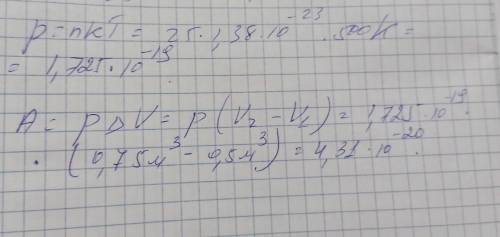 p = nkT = 25 · 1,38 · 10⁻²³ · 500K =
= 1,725 · 10⁻¹⁹.
A = p△V = p (V₂ − V₁) = 1,725 · 10⁻¹⁹ ·
· (0,75м³ − 0,5м³) = 4,31 · 10⁻²⁰.